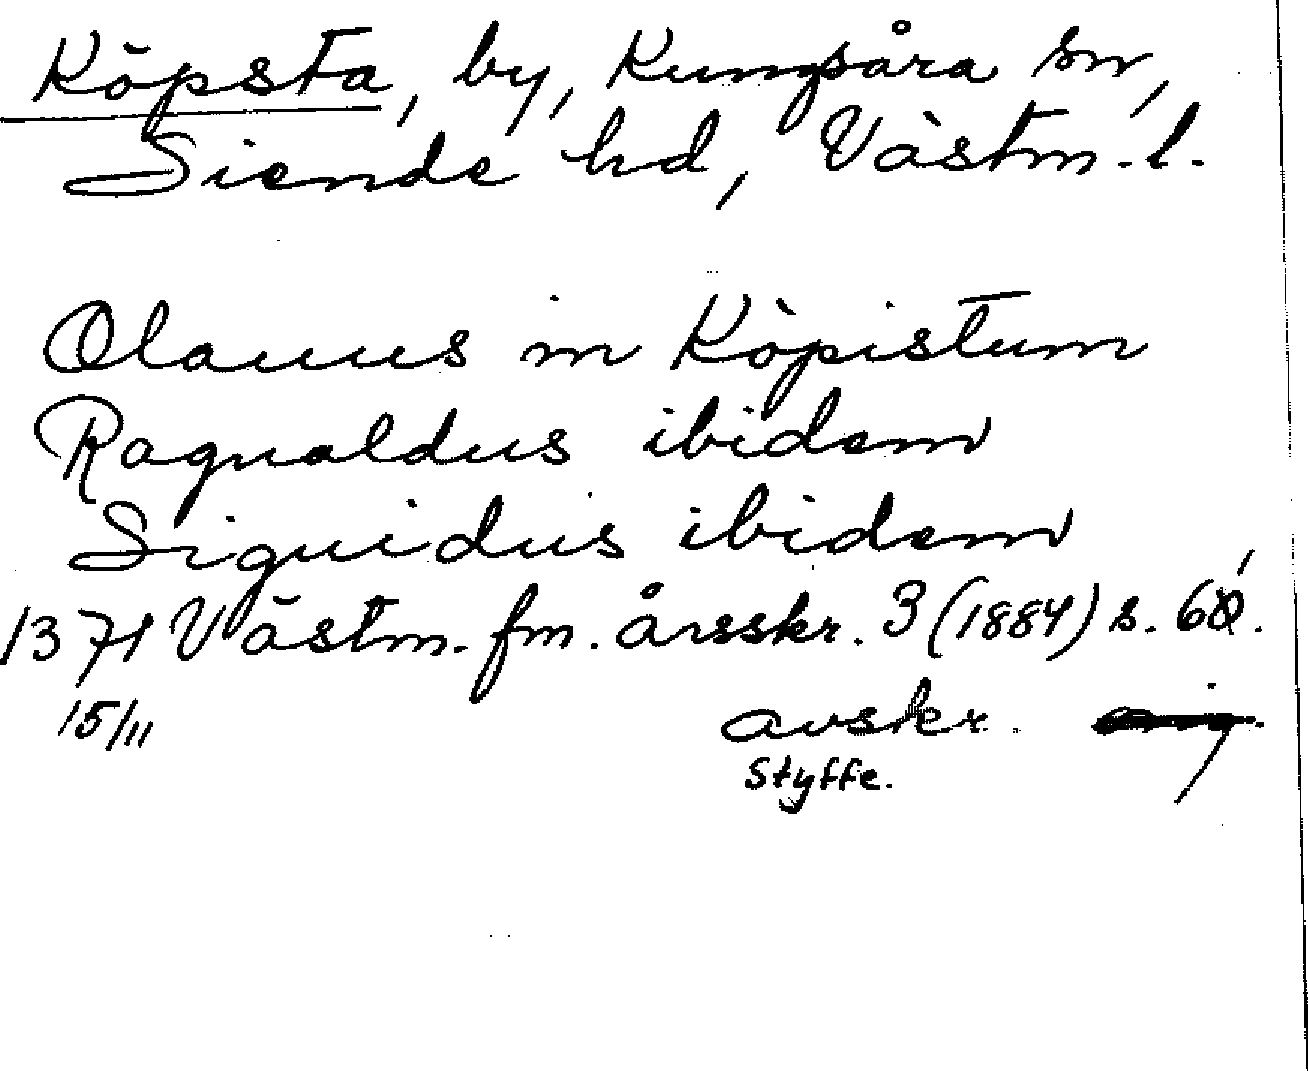 Köpsta, by, Kungsåra sn,
Siende hd, Västm. l.
Olauus in Köpistum
Ragualdus ibidem
Siguidus ibidem
1371 Västm. fm. årsskr. 3 (1884) s.
15/11 avskr.
Styffe.